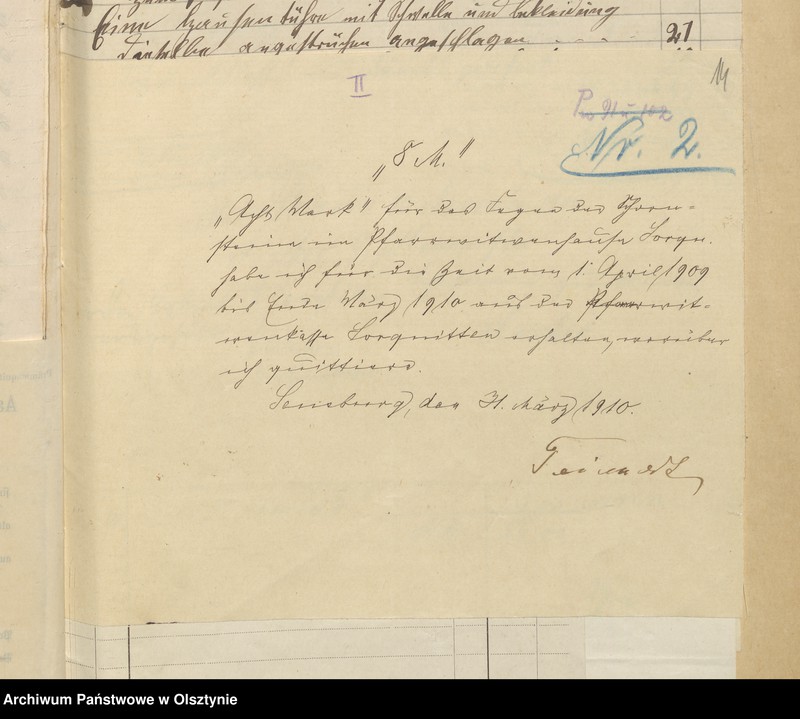 Eine Hausenthüre mit Schwelle und Bekleidung
dieselbe angestrichen angeschlagen 21
14
II
No 2.
„8 M."
„Acht Mark" für das Fegen der Schorn-
steine im Pfarrwitwenhause Sorqu.
habe ich für die Zeit vom 1. April 1909
bis Ende März 1910 aus der Pfarrwit-
wenkasse Sorquitten erhalten, worüber
ich quittiere.
Sensburg, den 31. März 1910.
Archiwum Państwowe w Olsztynie